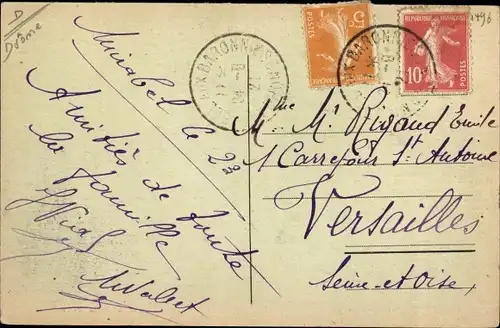 D
Drôme
Mirabel le 22
Amitiés de toute
la famille
POSTES 5c
RÉPUBLIQUE FRANÇAISE
10c POSTES
BARONNIES
BARONN
Mme Mr Rigaud Emile
1 Carrefour St Antoine
Versailles
Seine-et-Oise